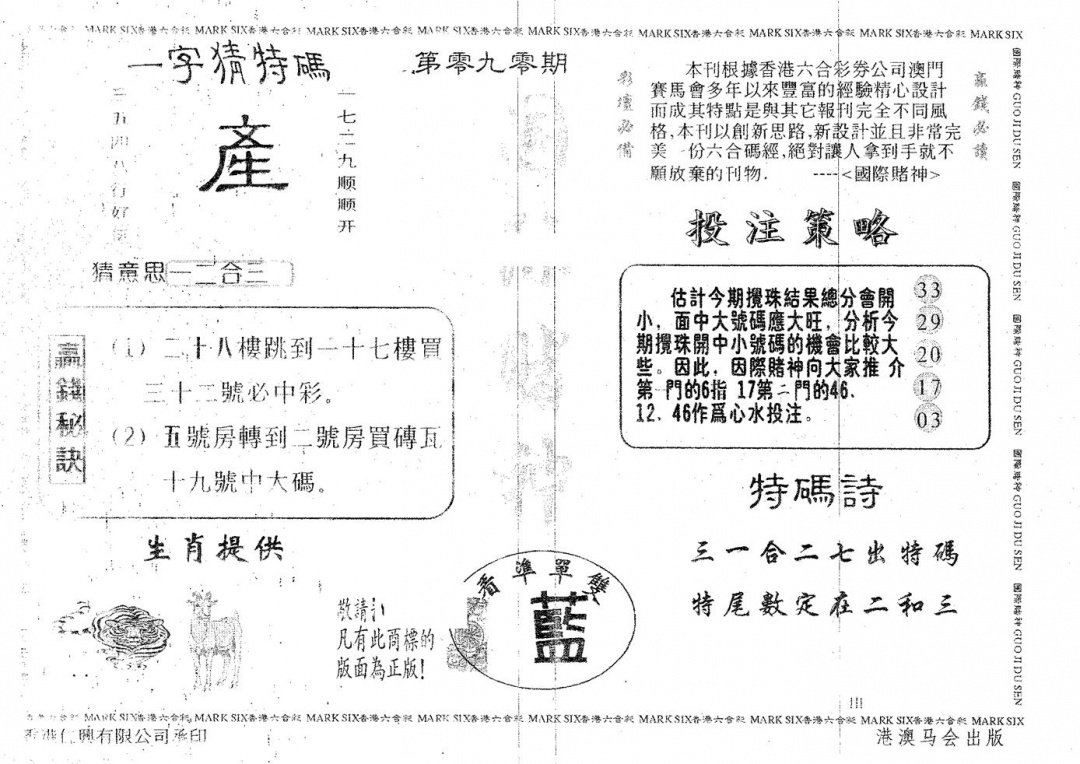 MARK SIX香港六合彩 MARK SIX香港六合彩 MARK SIX香港六合彩 MARK SIX香港六合彩 MARK SIX香港六合彩 MARK SIX香港六合彩 MARK SIX香港六合彩 MARK SIX香港六合彩 MARK SIX
一字猜特碼
第零九零期
二五四八行好
產
一七二九顺顺开
猜意思一二合三
贏錢秘訣
(1) 二十八樓跳到一十七樓買
三十二號必中彩。
(2) 五號房轉到二號房買磚瓦
十九號中大碼。
生肖提供
敬請
凡有此商標的
版面為正版!
看準單雙
藍
彩壇必備
本刊根據香港六合彩券公司澳門
賽馬會多年以來豐富的經驗精心設計
而成其特點是與其它報刊完全不同風
格,本刊以創新思路,新設計並且非常完
美一份六合碼經,絕對讓人拿到手就不
願放棄的刊物. ----<國際賭神>
贏錢必讀
投注策略
估計今期攪珠結果總分會開
小，面中大號碼應大旺，分析今
期攪珠開中小號碼的機會比較大
些。因此，因際賭神向大家推 介
第一門的6指 17第二門的46、
12、46作爲心水投注。
33
29
20
17
03
特碼詩
三一合二七出特碼
特尾數定在二和三
國際賭神 GUO JI DU SEN 國際賭神 GUO JI DU SEN 國際賭神 GUO JI DU SEN 國際賭神 GUO JI DU SEN 國際賭神 GUO JI DU SEN
MARK SIX香港六合彩 MARK SIX香港六合彩 MARK SIX香港六合彩 MARK SIX香港六合彩 MARK SIX香港六合彩 MARK SIX香港六合彩 MARK SIX香港六合彩 MARK SIX香港六合彩 MARK SIX
香港仁興有限公司承印
港澳马会出版